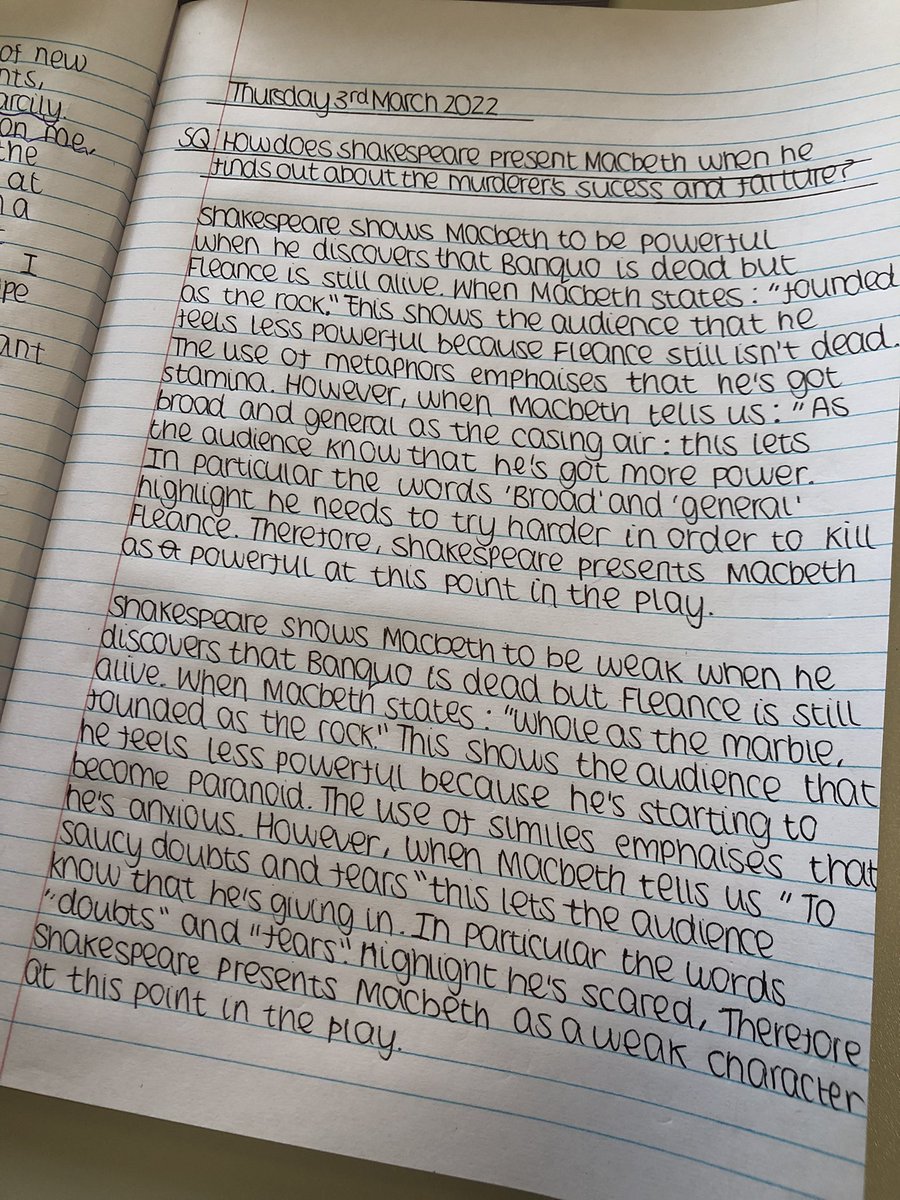 of new
nts,
arcily.
on me.
the
at
a
I
ape
ant
Thursday 3rd March 2022
SQ: How does shakespeare present Macbeth when he
finds out about the murderer's sucess and failure?
Shakespeare shows Macbeth to be powerful
when he discovers that Banquo is dead but
Fleance is still alive. When Macbeth states: "founded
as the rock." This shows the audience that he
feels less powerful because Fleance still isn't dead.
The use of metaphors emphaises that he's got
stamina. However, when Macbeth tells us: "As
broad and general as the casing air: this lets
the audience know that he's got more power.
In particular the words 'Broad' and 'general'
highlight he needs to try harder in order to kill
Fleance. Therefore, shakespeare presents Macbeth
as a powerful at this point in the play.
Shakespeare shows Macbeth to be weak when he
discovers that Banquo is dead but Fleance is still
alive. When Macbeth states: "Whole as the marble,
founded as the rock." This shows the audience that
he feels less powerful because he's starting to
become paranoid. The use of similes emphaises that
he's anxious. However, when Macbeth tells us "To
saucy doubts and fears" this lets the audience
know that he's giving in. In particular the words
"doubts" and "fears". highlight he's scared, Therefore
shakespeare presents Macbeth as a weak character
at this point in the play.